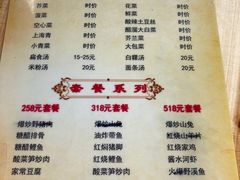 芥菜 时价 花菜 时价
菠菜 时价 鲜菜 时价
空心菜 时价 酸辣土豆丝 时价
上海青 时价 醋溜大白菜 时价
芥兰菜 时价
小青菜 时价 大包菜 时价
扁食汤 15-25元 白粿汤 20元
米粉汤 20元 面条汤 20元
套餐系列
258元套餐 318元套餐 518元套餐
爆炒野猪肉 爆炒山兔 爆炒山兔
糖醋排骨 油炸带鱼 红烧山羊片
糖醋鲤鱼 红焖猪脚 红烧家鸡
酸菜笋炒肉 红烧鲤鱼 酱水河虾
家常豆腐 酸菜笋炒肉 火爆野溪鱼